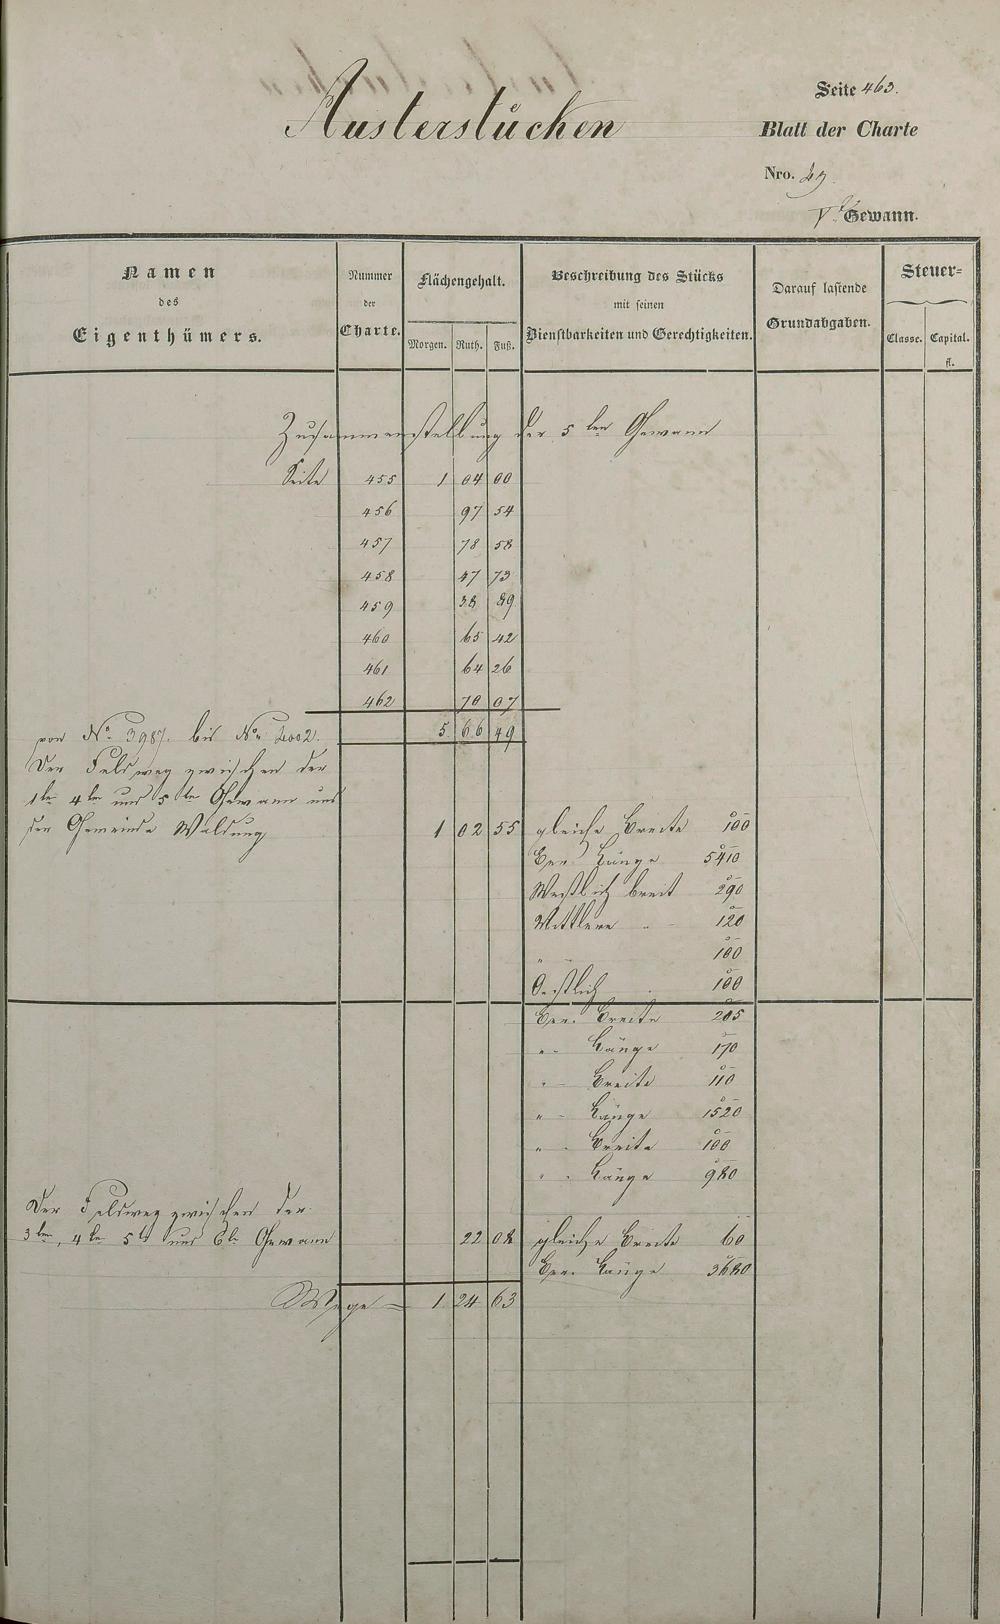 Austerstücken
Seite 463.
Blatt der Charte
Nro. 29
V.te Gewann.
Namen
des
Eigenthümers.
Nummer
der
Charte.
Flächengehalt.
Morgen. Ruth. Fuß.
Beschreibung des Stücks
mit seinen
Dienstbarkeiten und Gerechtigkeiten.
Darauf lastende
Grundabgaben.
Steuer=
Classe. Capital.
fl.
Zusammenstellung der 5ten Gewann
Seite 455 1 04 00
456 97 54
457 78 58
458 47 73
459 38 89
460 65 42
461 64 26
462 70 07
von No. 3987. bis No. 4002. 5 66 49
Der Feldweg zwischen der
1te 4te und 5te Gewann und
der Gemeinde Waldung 1 02 55 gleiche Breite 100
Ber. Länge 5410
Westlich breit 290
Mittlere " 120
" 100
Oestlich 100
Ber. Breite 205
" Länge 170
" Breite 110
" Länge 1520
" Breite 100
" Länge 980
Der Feldweg zwischen der
3ten, 4te 5te und 6te Gewann 22 08 gleiche Breite 60
Ber. Länge 3680
Wege = 1 24 63